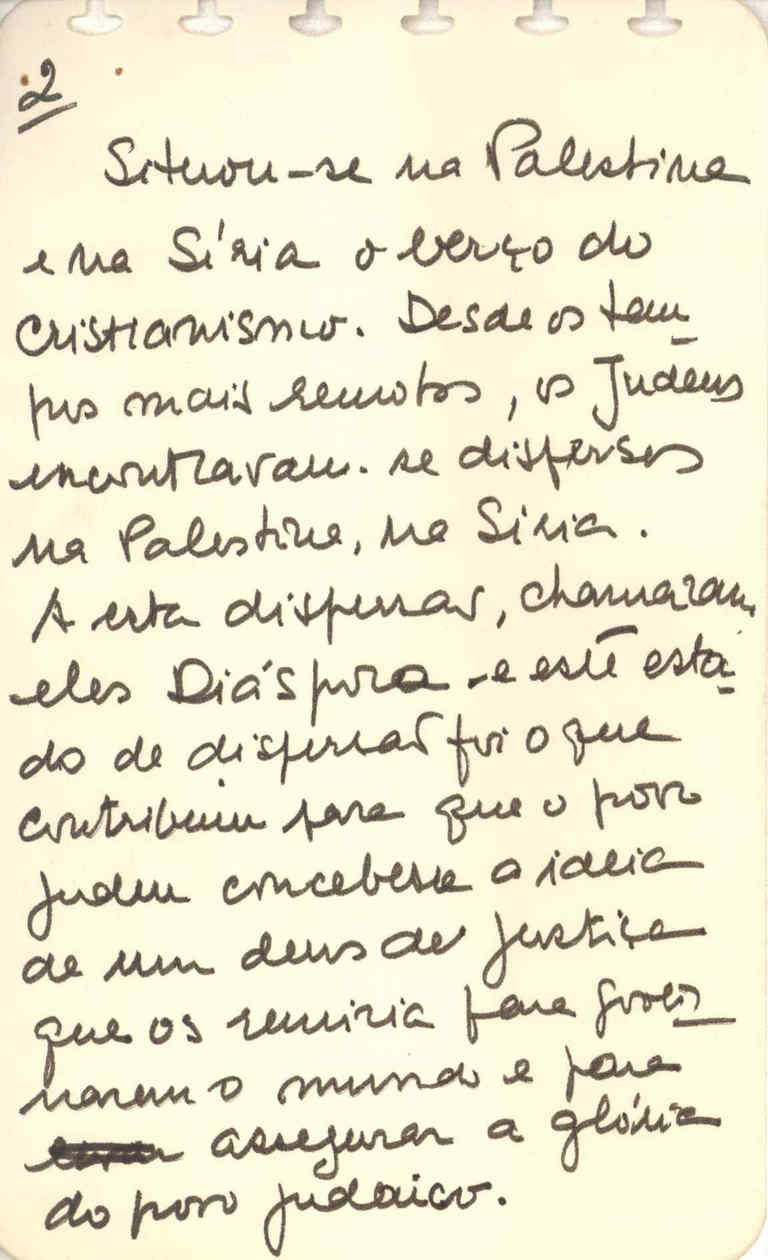 2
Situou-se na Palestina
e na Síria o berço do
Cristianismo. Desde os tem_
pos mais remotos, os Judeus
encontravam-se dispersos
na Palestina, na Síria.
A esta dispersão, chamaram
eles Diáspora - e este esta_
do de dispersão foi o que
contribuiu para que o povo
judeu concebesse a ideia
de um deus de justiça
que os reuniria para gover_
narem o mundo e para
assegurar a glória
do povo judaico.